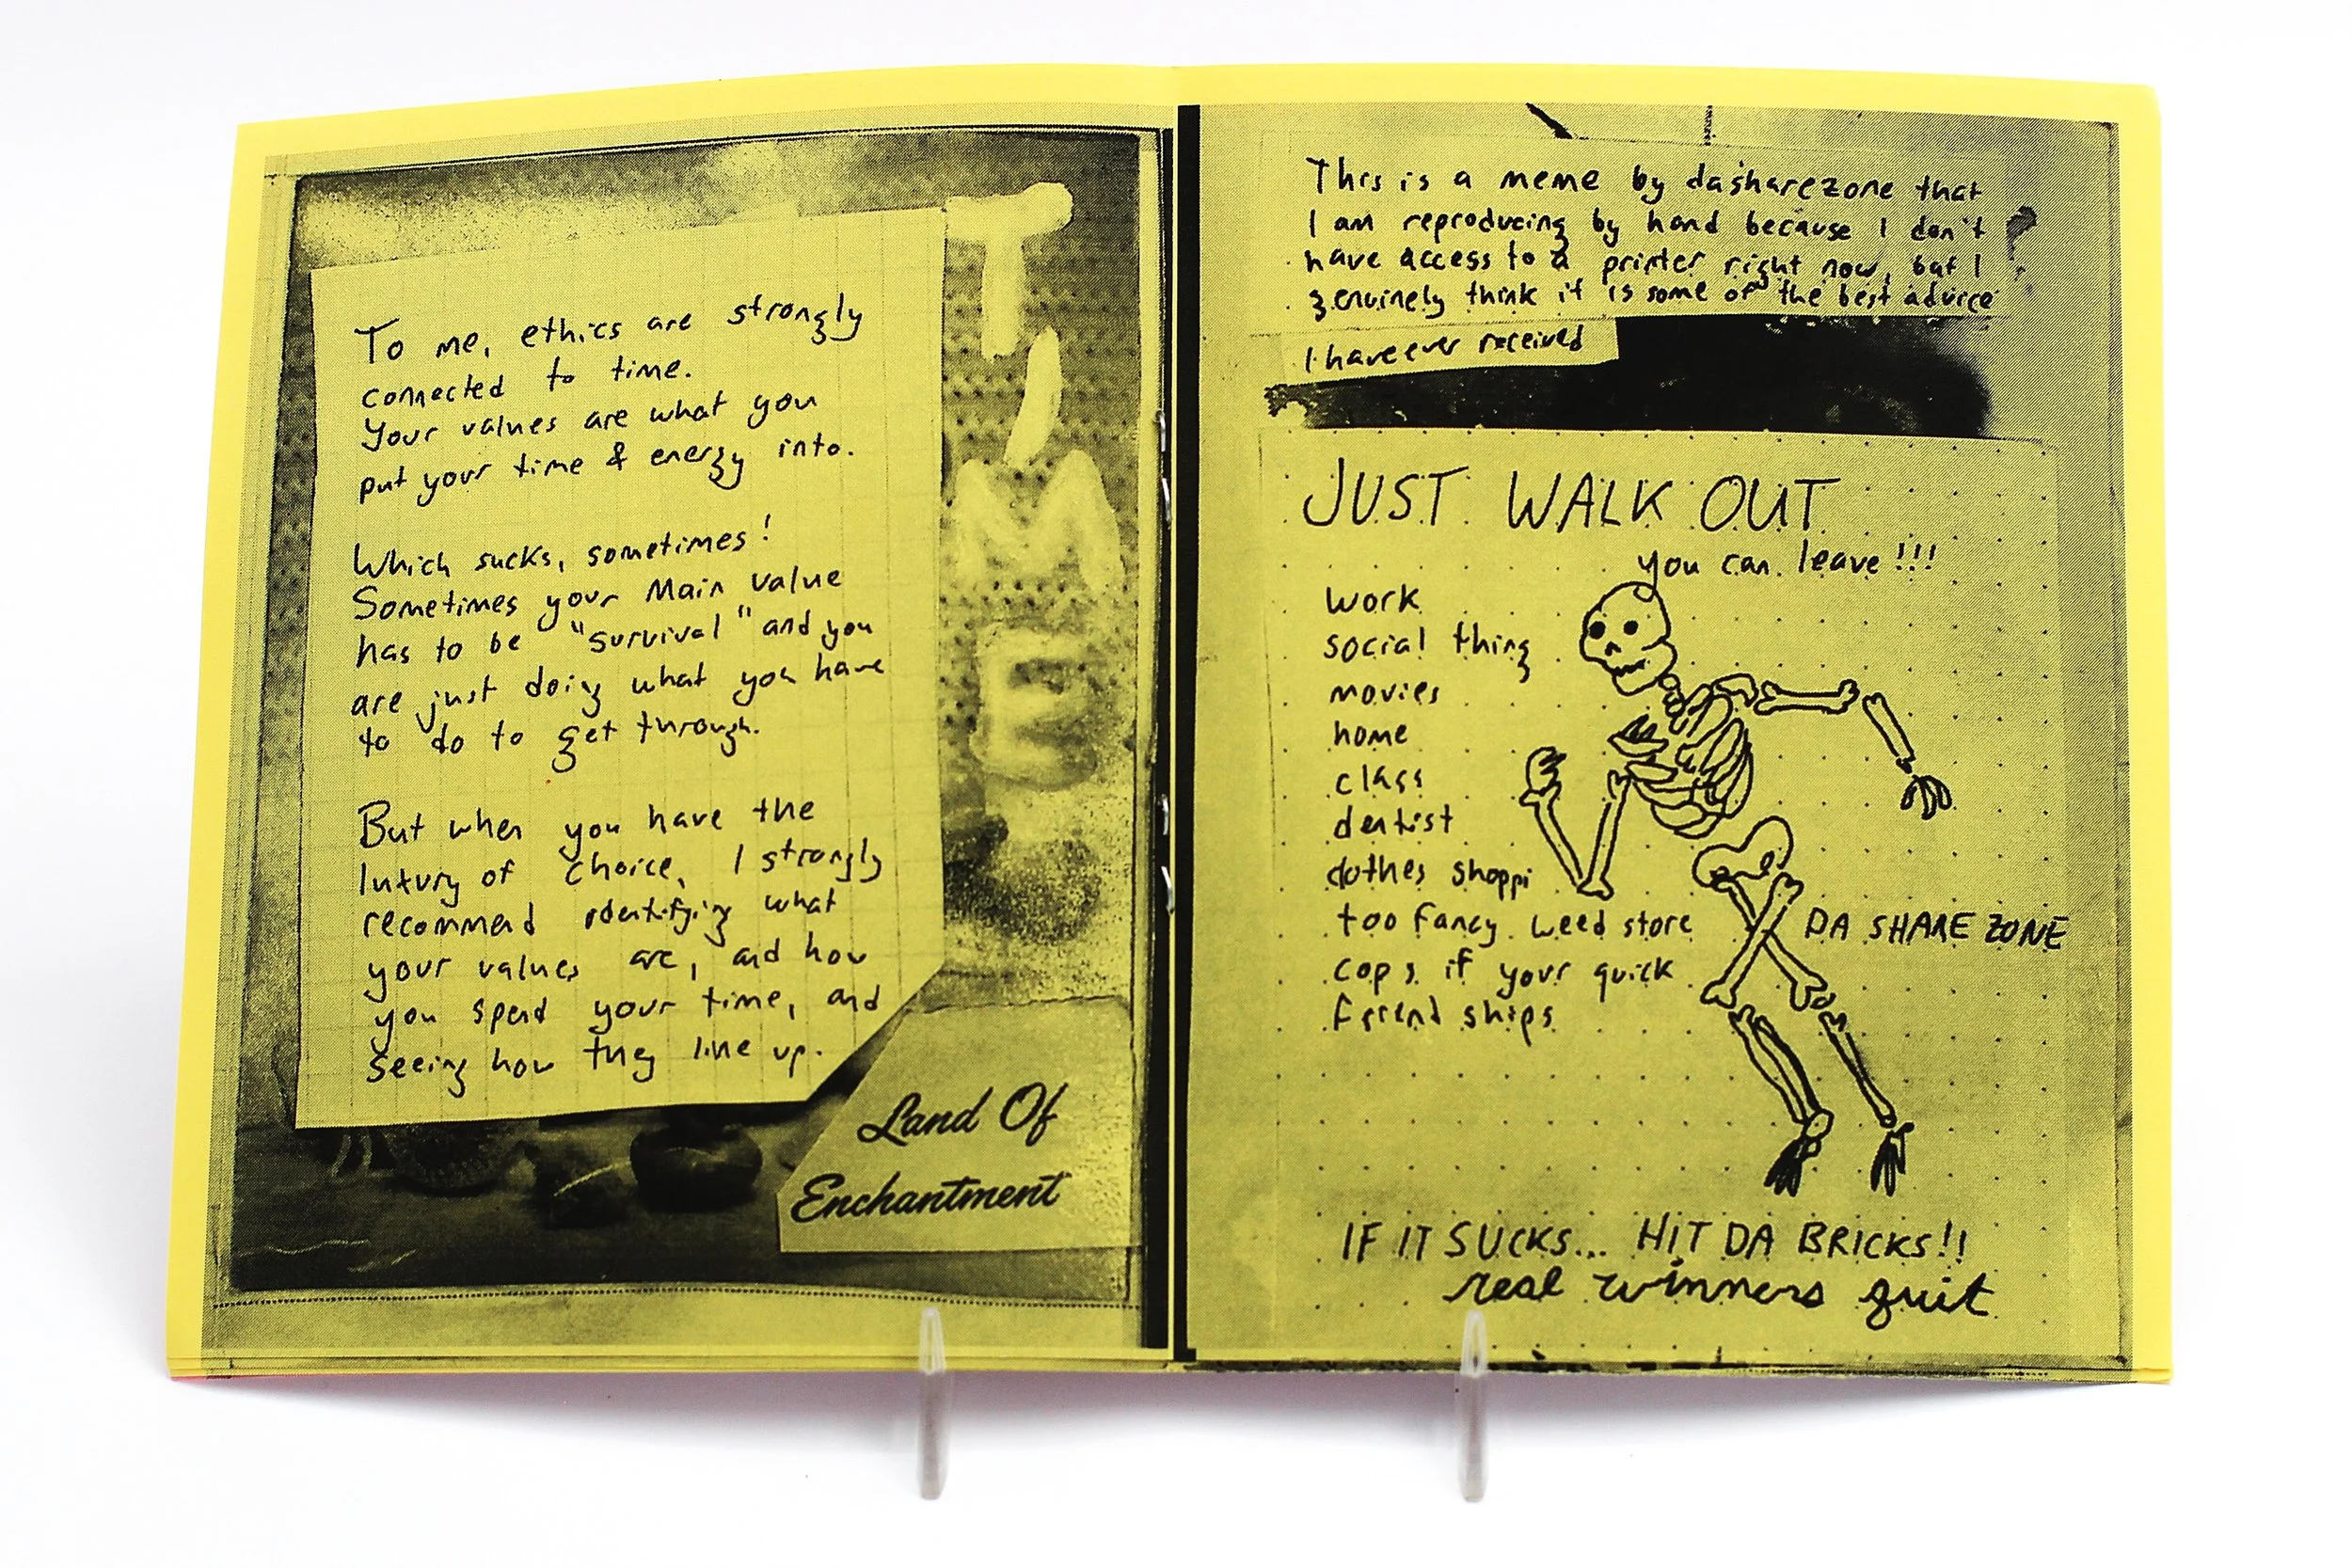 To me, ethics are strongly
connected to time.
Your values are what you
put your time & energy into.
Which sucks, sometimes!
Sometimes your Main value
has to be "survival" and you
are just doing what you have
to do to get through.
But when you have the
luxury of choice, I strongly
recommend identifying what
your values are, and how
you spend your time, and
seeing how they line up.
TIME
Land Of
Enchantment
This is a meme by dasharezone that
I am reproducing by hand because I don't
have access to a printer right now, but I
genuinely think it is some of the best advice
I have ever received
JUST WALK OUT
you can leave!!!
work
social thing
movies
home
class
dentist
clothes shoppi
too fancy weed store
cops if your quick
friend ships
DA SHARE ZONE
IF IT SUCKS... HIT DA BRICKS!!
real winners quit